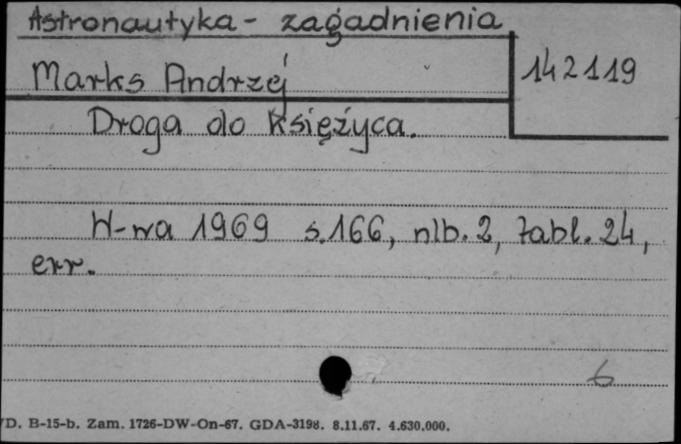 Astronautyka - zagadnienia
Marks Andrzej
142119
Droga do Księżyca.
W-wa 1969 s.166, nlb. 2, tabl. 24,
err.
6
D. B-15-b. Zam. 1726-DW-On-67. GDA-3198. 8.11.67. 4.630.000.